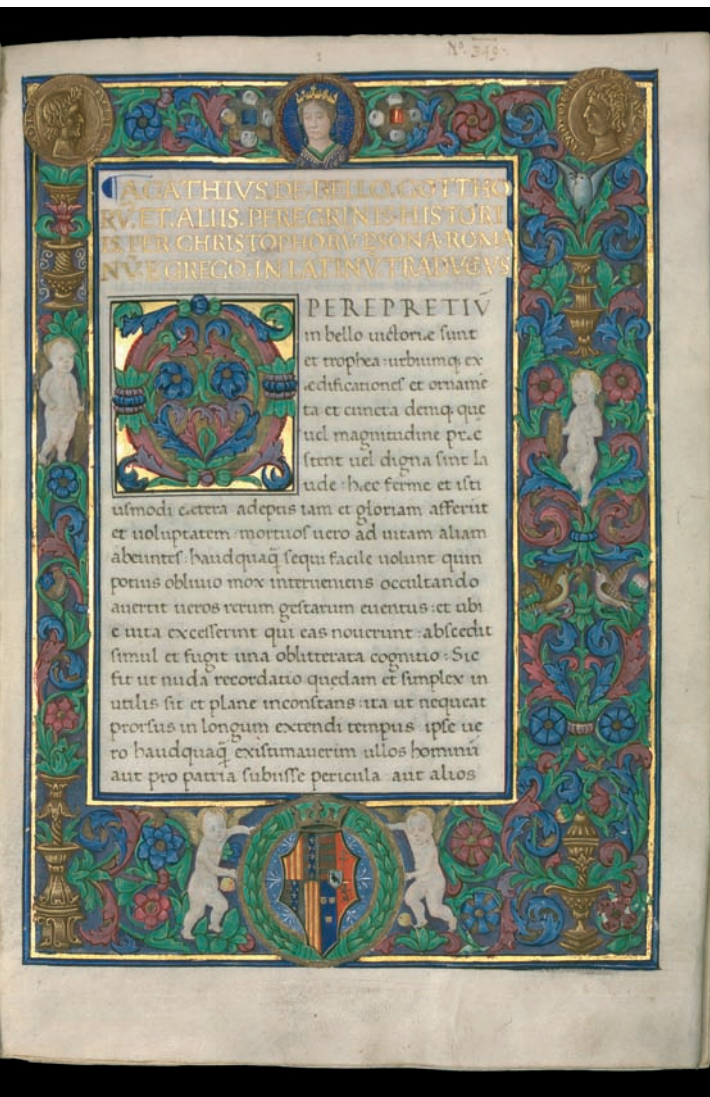 Nº. 349.
1
AGATHIVS. DE. BELLO. GOTTHO
RV̄. ET. ALIIS. PEREGRINIS. HISTORI
IS. PER CHRISTOPHORV̄. PSONA. ROMA
NV̄. E GRECO. IN LATINV̄. TRADVCTVS
O PERE PRETIV̄
in bello uictoriæ sunt
et trophea : urbiumq; ex
ædificationes et orname
ta et cuncta demq; que
uel magnitudine præ
stent uel digna sint la
ude : hæc ferme et isti
usmodi cætera adeptis iam et gloriam afferūt
et uoluptatem : mortuos uero ad uitam aliam
abeuntes : haud quaq̄ sequi facile uolunt quin
potius obliuio mox interueniens occultando
auertit ueros rerum gestarum euentus : et ubi
e uita excesserint qui eas nouerunt : abscedit
simul et fugit una oblitterata cognitio : Sic
fit ut nuda recordatio quędam et simplex in
utilis sit et plane inconstans : ita ut nequeat
prorsus in longum extendi tempus ipse ue
ro haudquaq̄ existimauerim ullos hominū
aut pro patria subiisse pericula aut alios